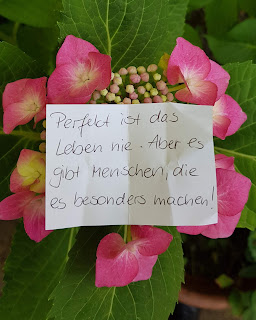 Perfekt ist das
Leben nie. Aber es
gibt Menschen, die
es besonders machen!